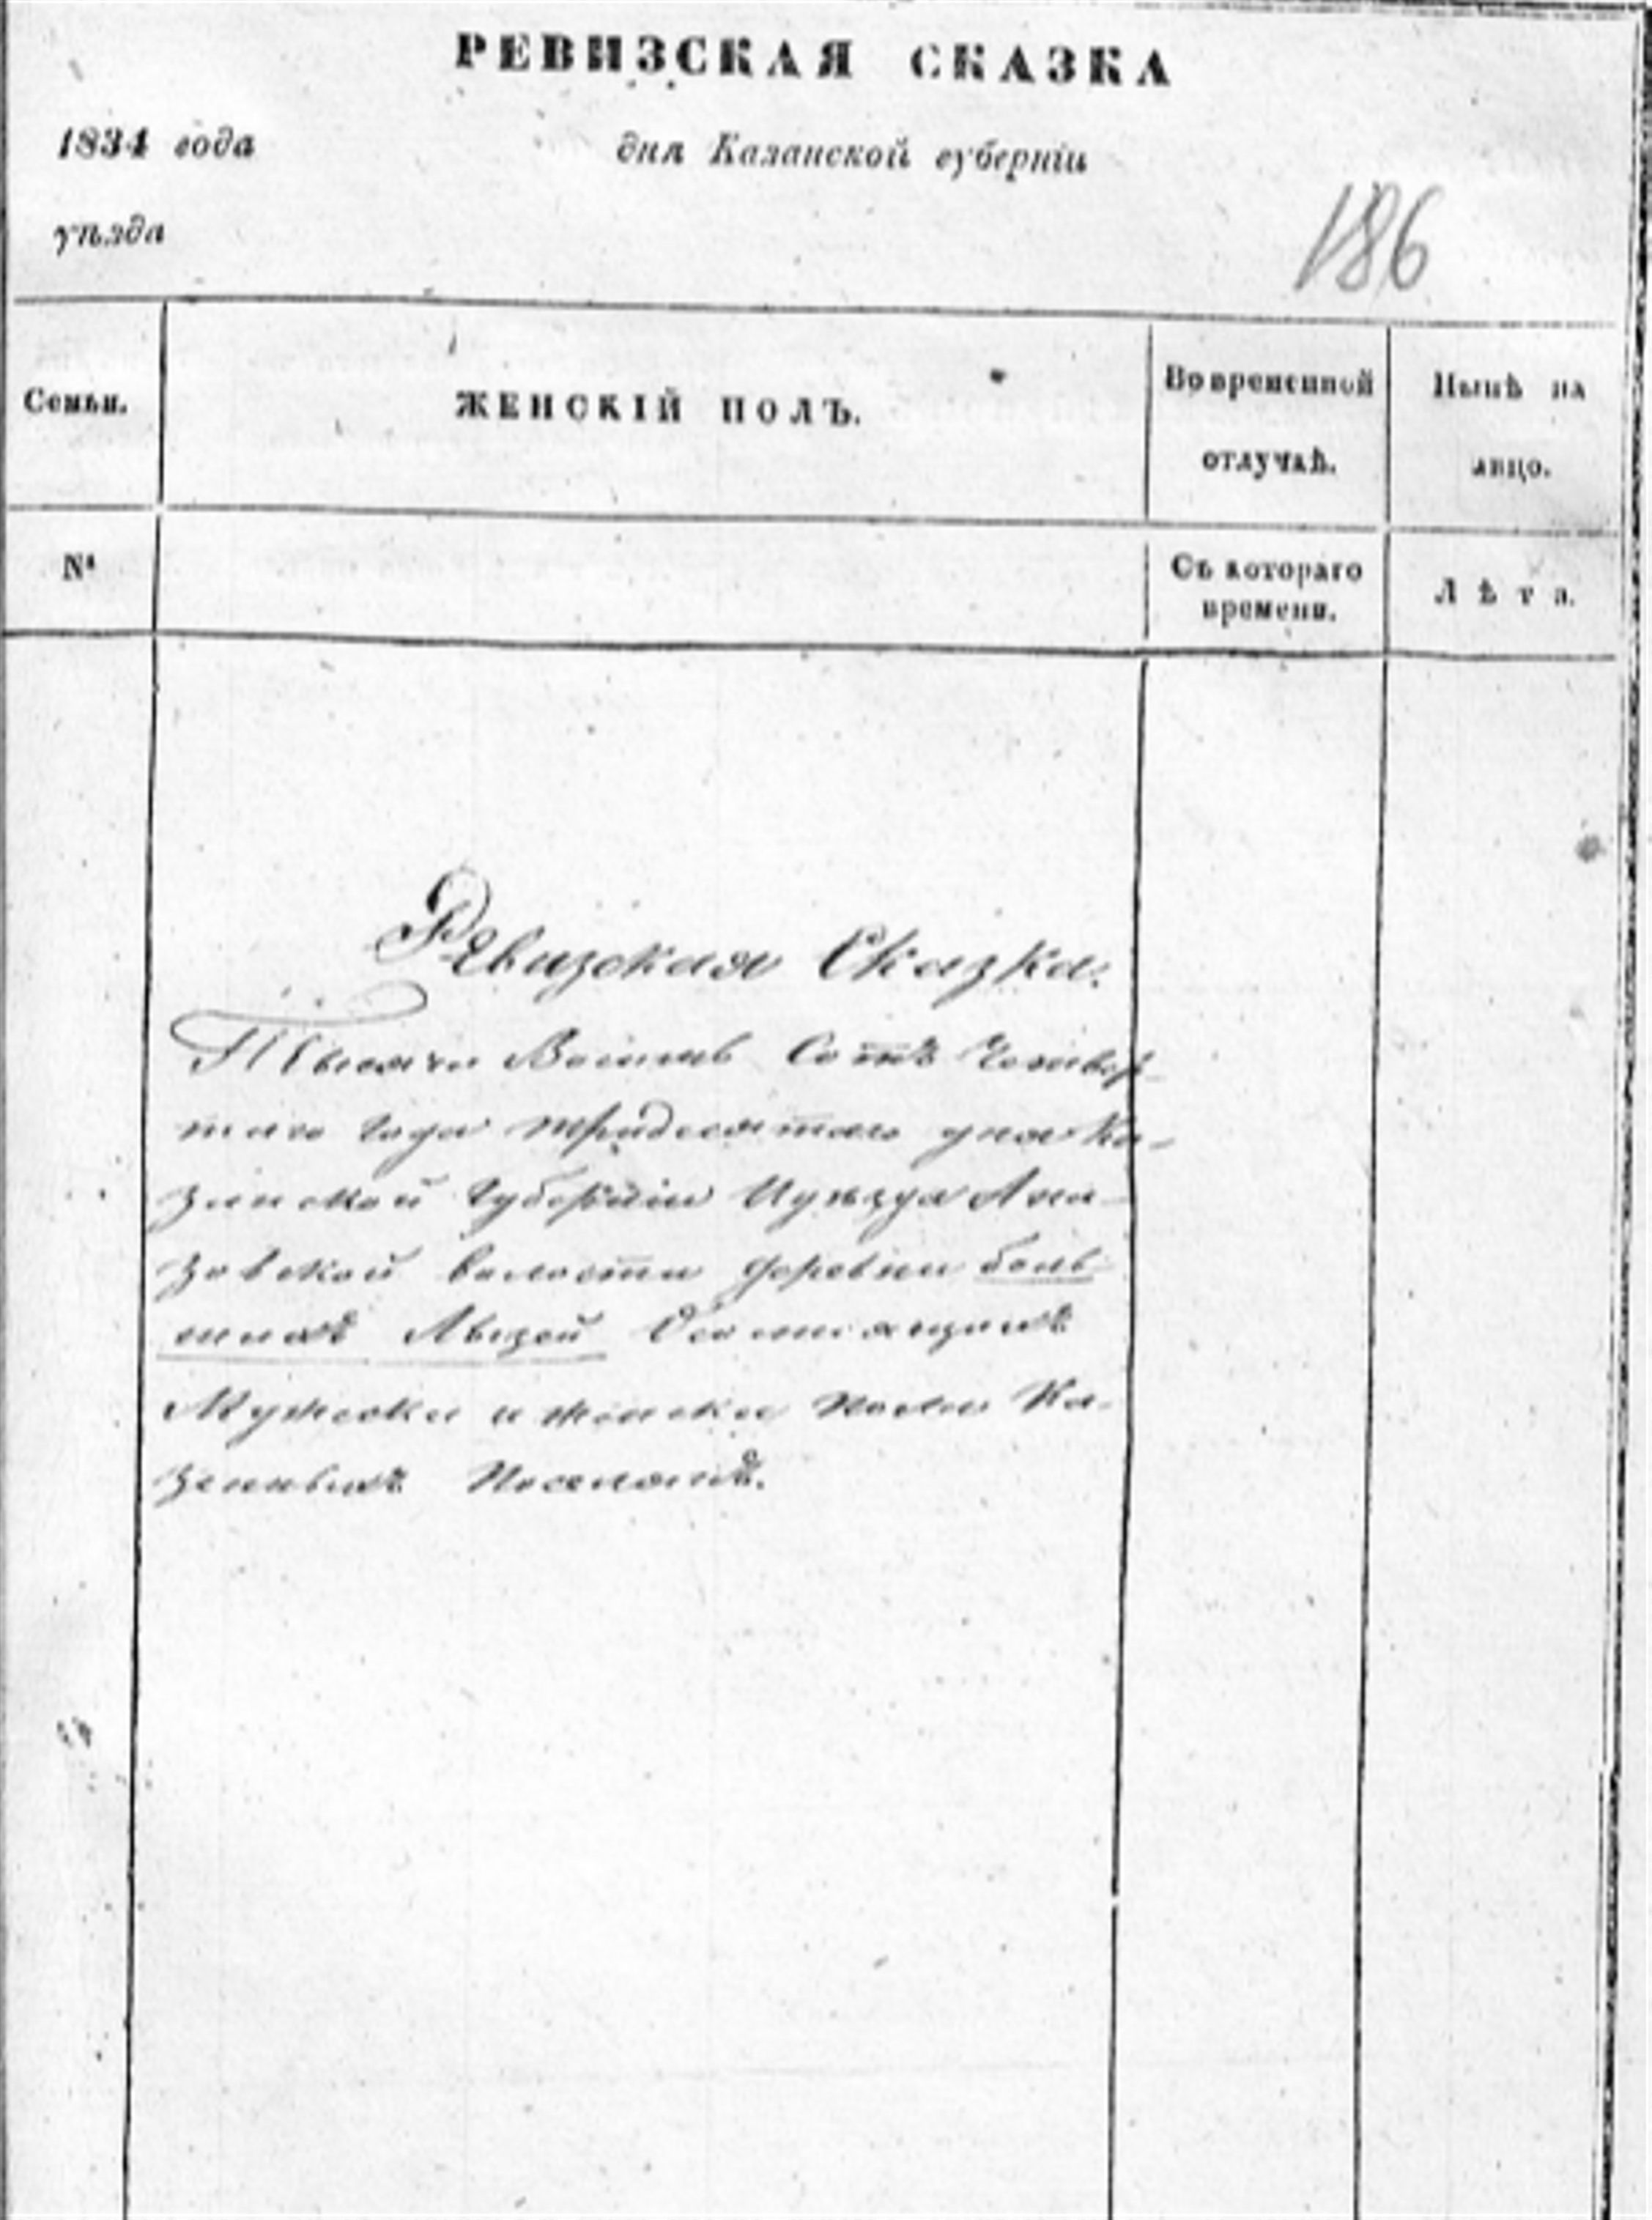 РЕВИЗСКАЯ СКАЗКА
1834 года дня Казанской губерніи
уѣзда
186
Семьи. ЖЕНСКІЙ ПОЛЪ. Во временной отлучкѣ. Нынѣ на лицо.
№ Съ котораго времени. Лѣта.
Ревизская Сказка.
Тысяча Восемь Сотъ Четвер-
таго года тридесятаго дня Ка-
занской Губерніи И уѣзда
волости деревни боль-
шихъ Состоящихъ
Мужеска и женска пола Ка-
зенныхъ Поселянъ.